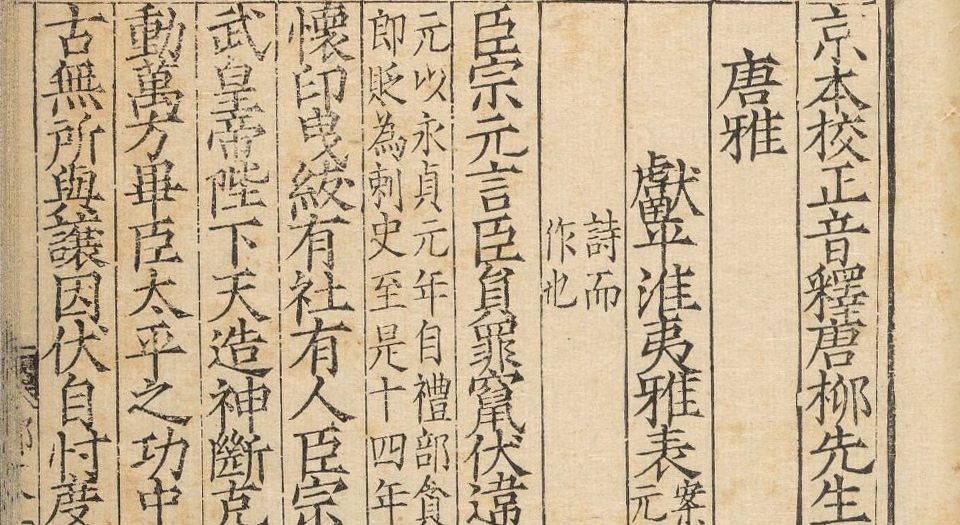 京本校正音釋唐柳先生
唐雅
獻平淮夷雅表
案
元
詩而
作也
臣宗元言臣負罪竄伏違
元以永貞元年自禮部貟
即貶為刺史至是十四年
懷印曳紱有社有人臣宗
武皇帝陛下天造神斷克
動萬方畢臣太平之功中
古無所與讓因伏自忖度